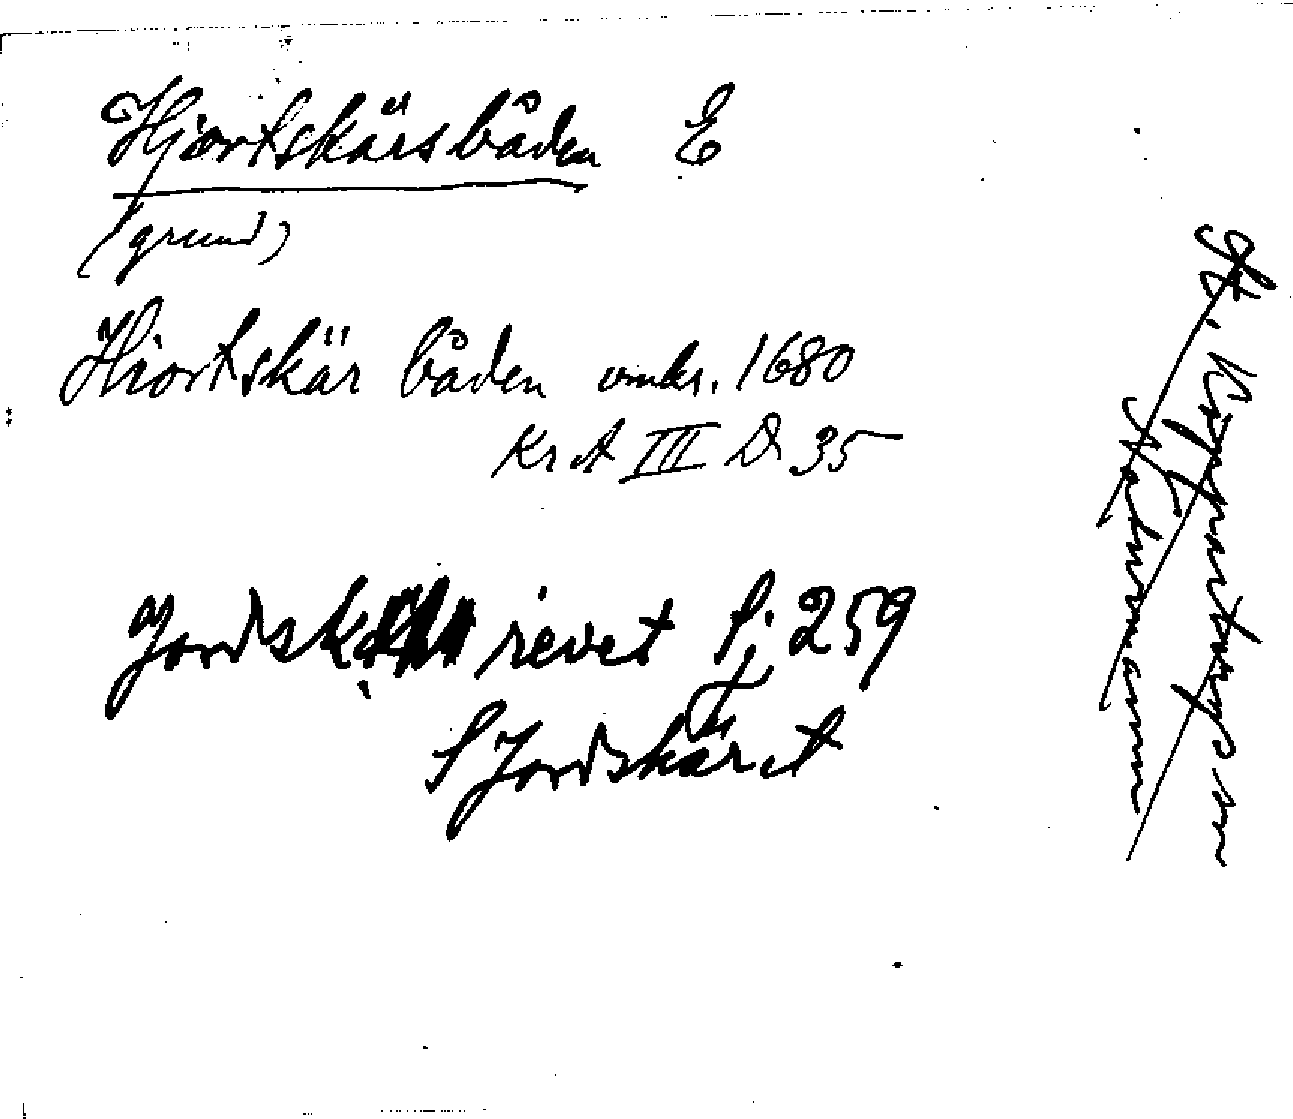 Hjortskärsbåden E
(grund)
Hiortskär båden omkr. 1680
Kr A III D 35
Jordsk revet S; 259
S Jordskäret